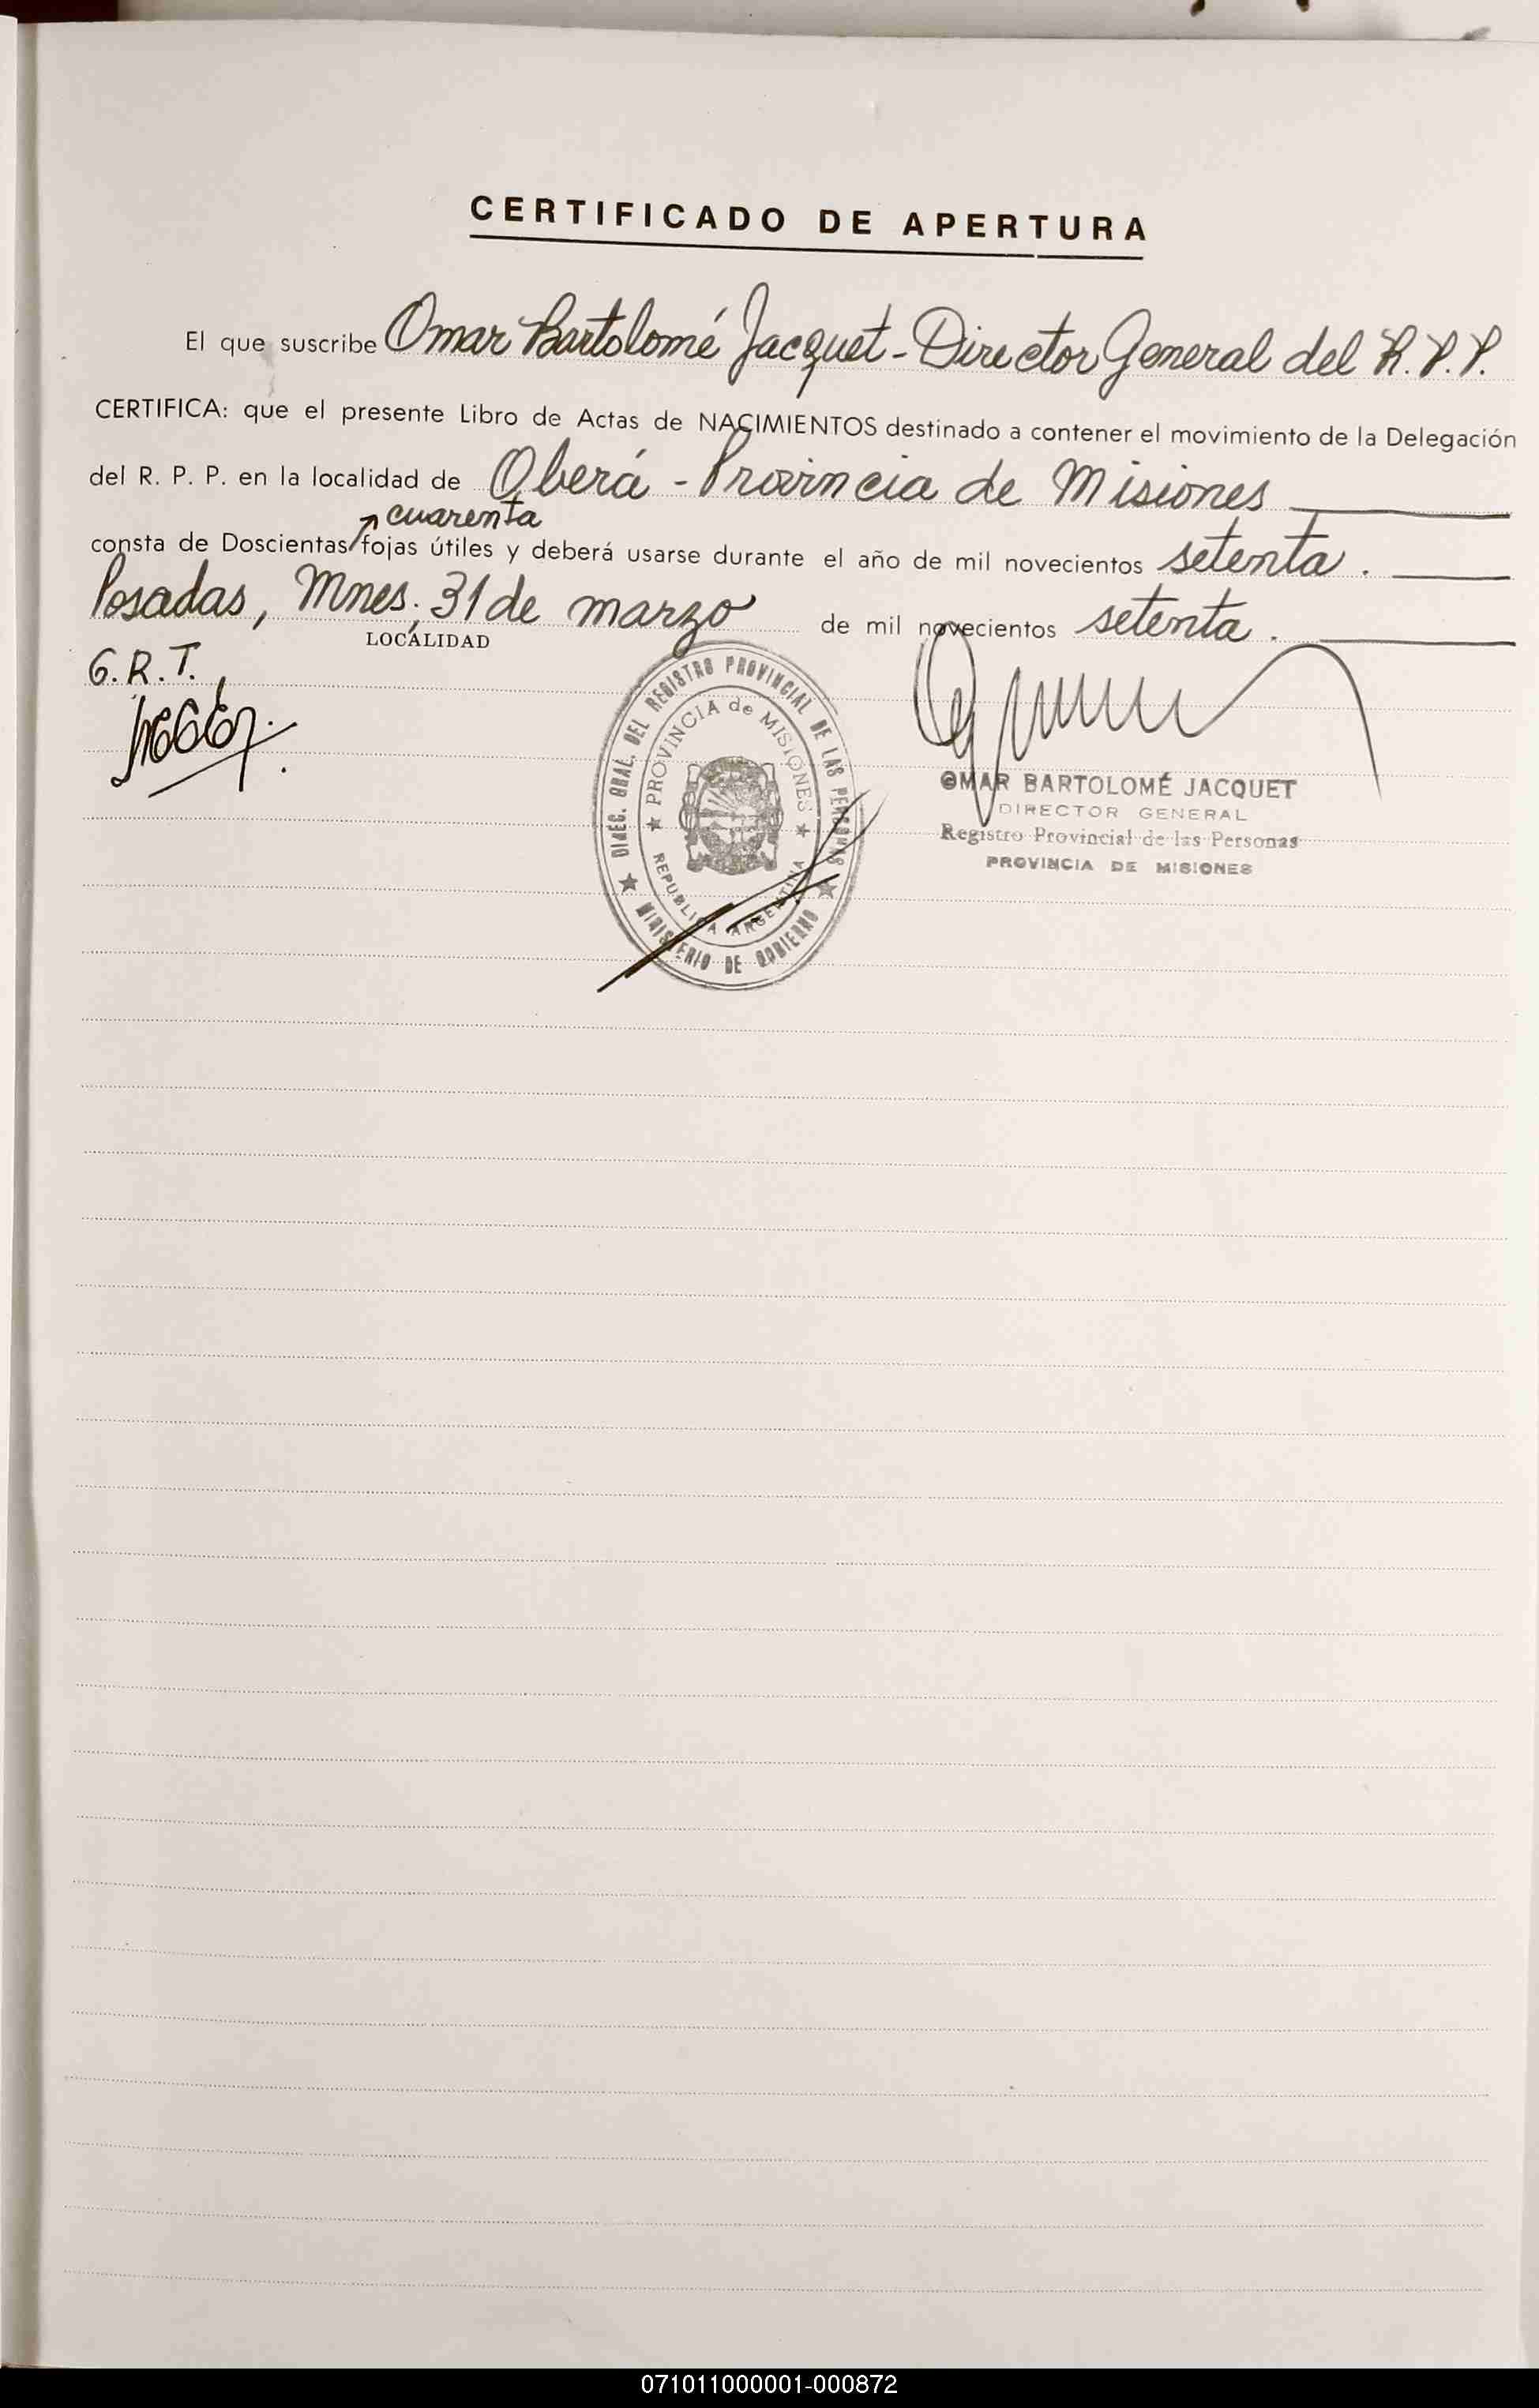 CERTIFICADO DE APERTURA
El que suscribe Omar Bartolomé Jacquet - Director General del R.P.P.
CERTIFICA: que el presente Libro de Actas de NACIMIENTOS destinado a contener el movimiento de la Delegación
del R. P. P. en la localidad de Oberá - Provincia de Misiones
cuarenta
consta de Doscientas fojas útiles y deberá usarse durante el año de mil novecientos setenta.
Posadas, Mnes. 31 de marzo de mil novecientos setenta.
LOCALIDAD
G.R.T.
DIREC. GRAL. DEL REGISTRO PROVINCIAL DE LAS PERSONAS
PROVINCIA de MISIONES
REPUBLICA ARGENTINA
MINISTERIO DE GOBIERNO
OMAR BARTOLOMÉ JACQUET
DIRECTOR GENERAL
Registro Provincial de las Personas
PROVINCIA DE MISIONES
071011000001-000872